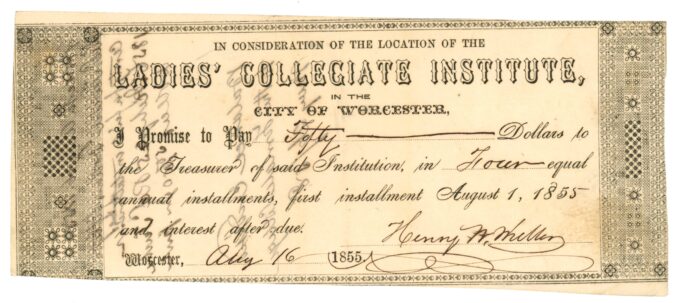 IN CONSIDERATION OF THE LOCATION OF THE
LADIES' COLLEGIATE INSTITUTE,
IN THE
CITY OF WORCESTER,
I Promise to Pay Fifty Dollars to
the Treasurer of said Institution, in Four equal
annual installments, first installment August 1, 1855
and interest after due.
Henry W. Miller
Worcester, Aug 16 1855.